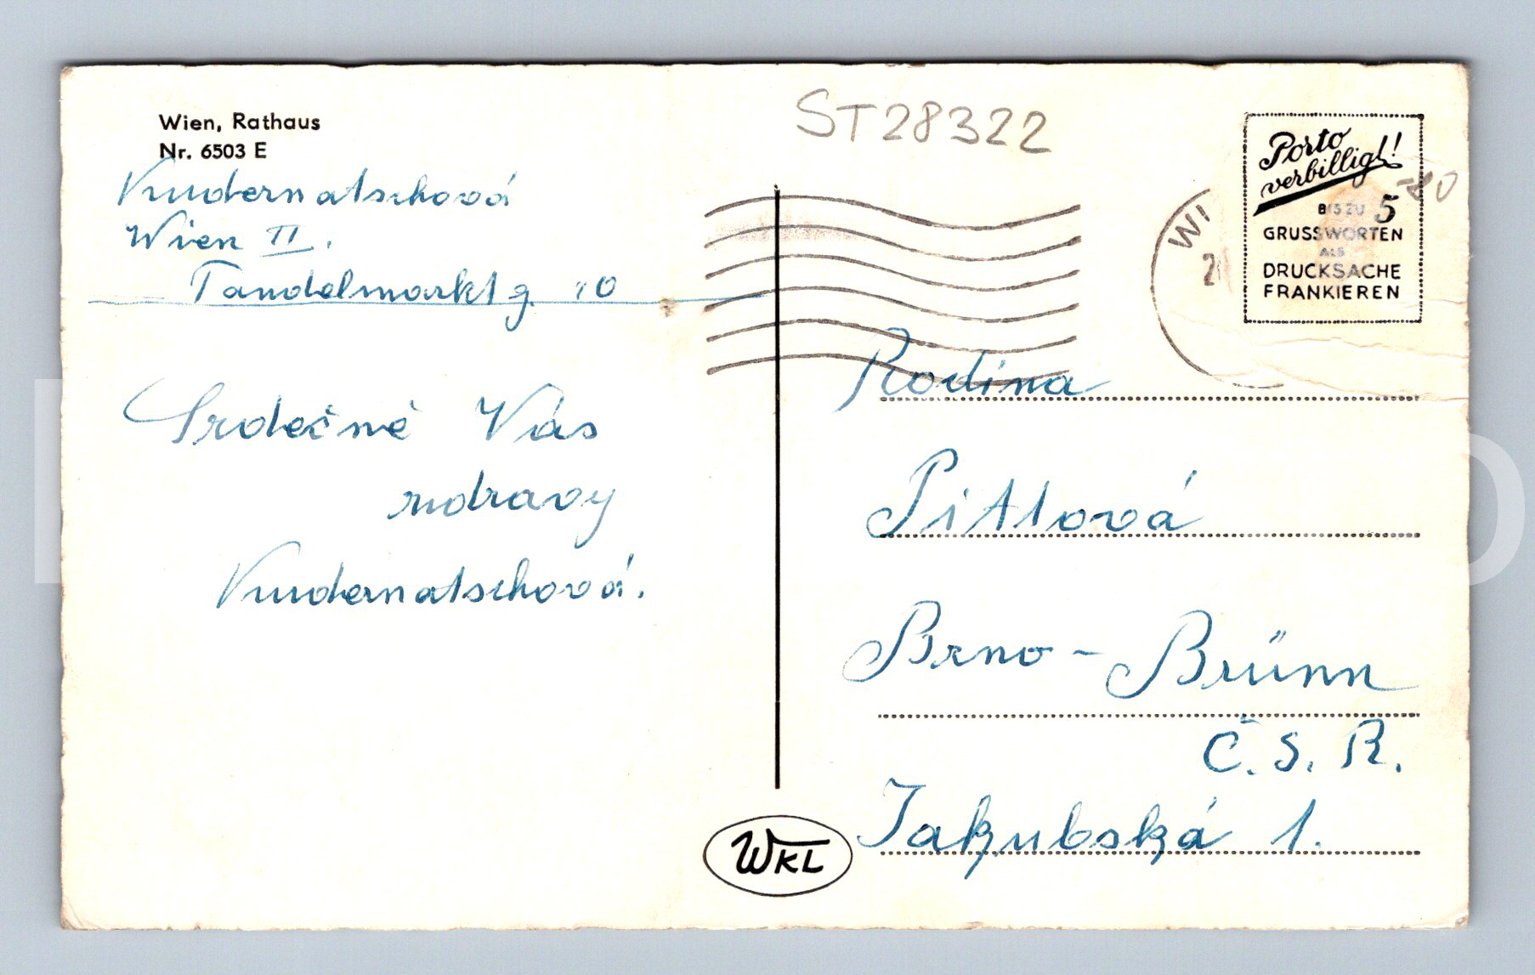 Wien, Rathaus
Nr. 6503 E
Kudernatschová
Wien II.
Tandelmarktg. 10
Srdečně Vás
zdravy
Kudernatschová.
ST28322
WI
Porto
verbilligt!
BIS ZU 5
GRUSSWORTEN
ALS
DRUCKSACHE
FRANKIEREN
Rodina
Pittlová
Brno - Brünn
Č. S. R.
Jakubská 1.
WKL